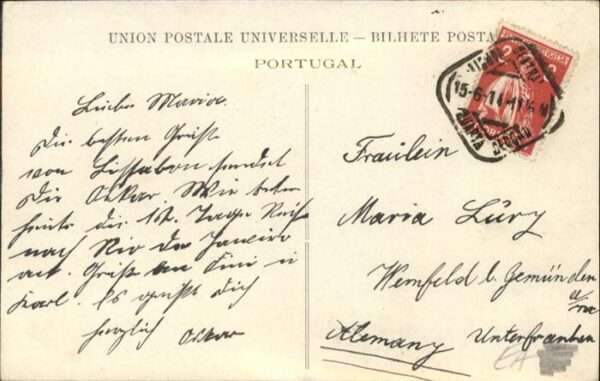 UNION POSTALE UNIVERSELLE — BILHETE POSTA
PORTUGAL
15-6-14-11½ M
Liebe Maria.
Die besten Grüße
von Lissabon sendet
Dir Oskar. Wir treten
heute die 12. Tage Reise
nach Rio de Janeiro
an. Gruß an Fini u
Karl. Es grüßt Dich
herzlich Oskar
Fräulein
Maria Lury
Wemfeld b. Gemünden
a/m
Alemany Unterfranken